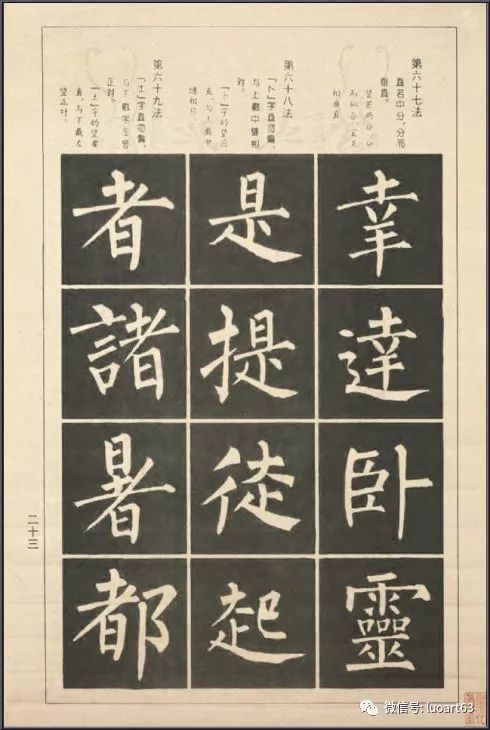 第六十七法
直若中分,分而
垂直。
竖若两分,分
相垂直
第六十八法
「卜」字直勿偏,
与上截中缝相
对。
「卜」字的竖应
直,与上截中
缝相应。
第六十九法
「土」字直勿偏,
与下截字左竖
正对。
「土」字的竖要
直,与下截左
竖正对。
幸達卧靈
是提従起
者諸暑都
二十三
微信号: luoart63